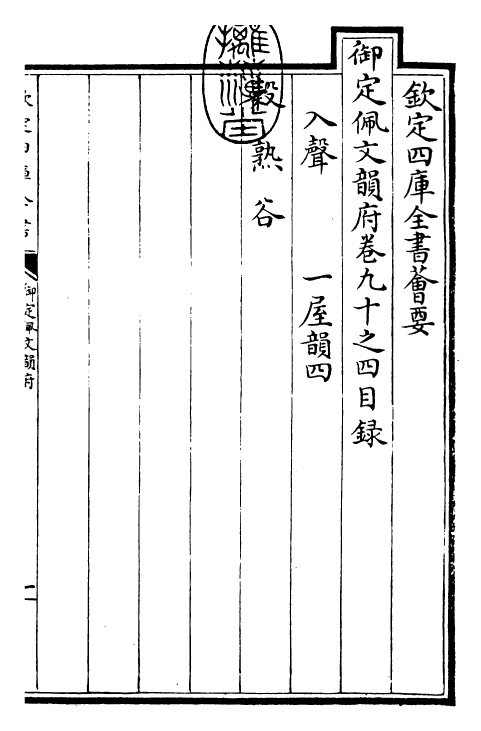 欽定四庫全書薈要
御定佩文韻府卷九十之四目録
入聲　一屋韻四
穀　熟　谷
御定佩文韻府
一